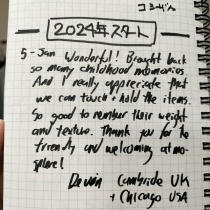 2024年スタート
5-Jan Wonderful! Brought back
so many childhood memories.
And I really appreciate that
we can touch + hold the items.
So good to remember their weight
and texture. Thank you for the
friendly and welcoming atmo-
sphere!
Devin Cambridge UK
+ Chicago USA